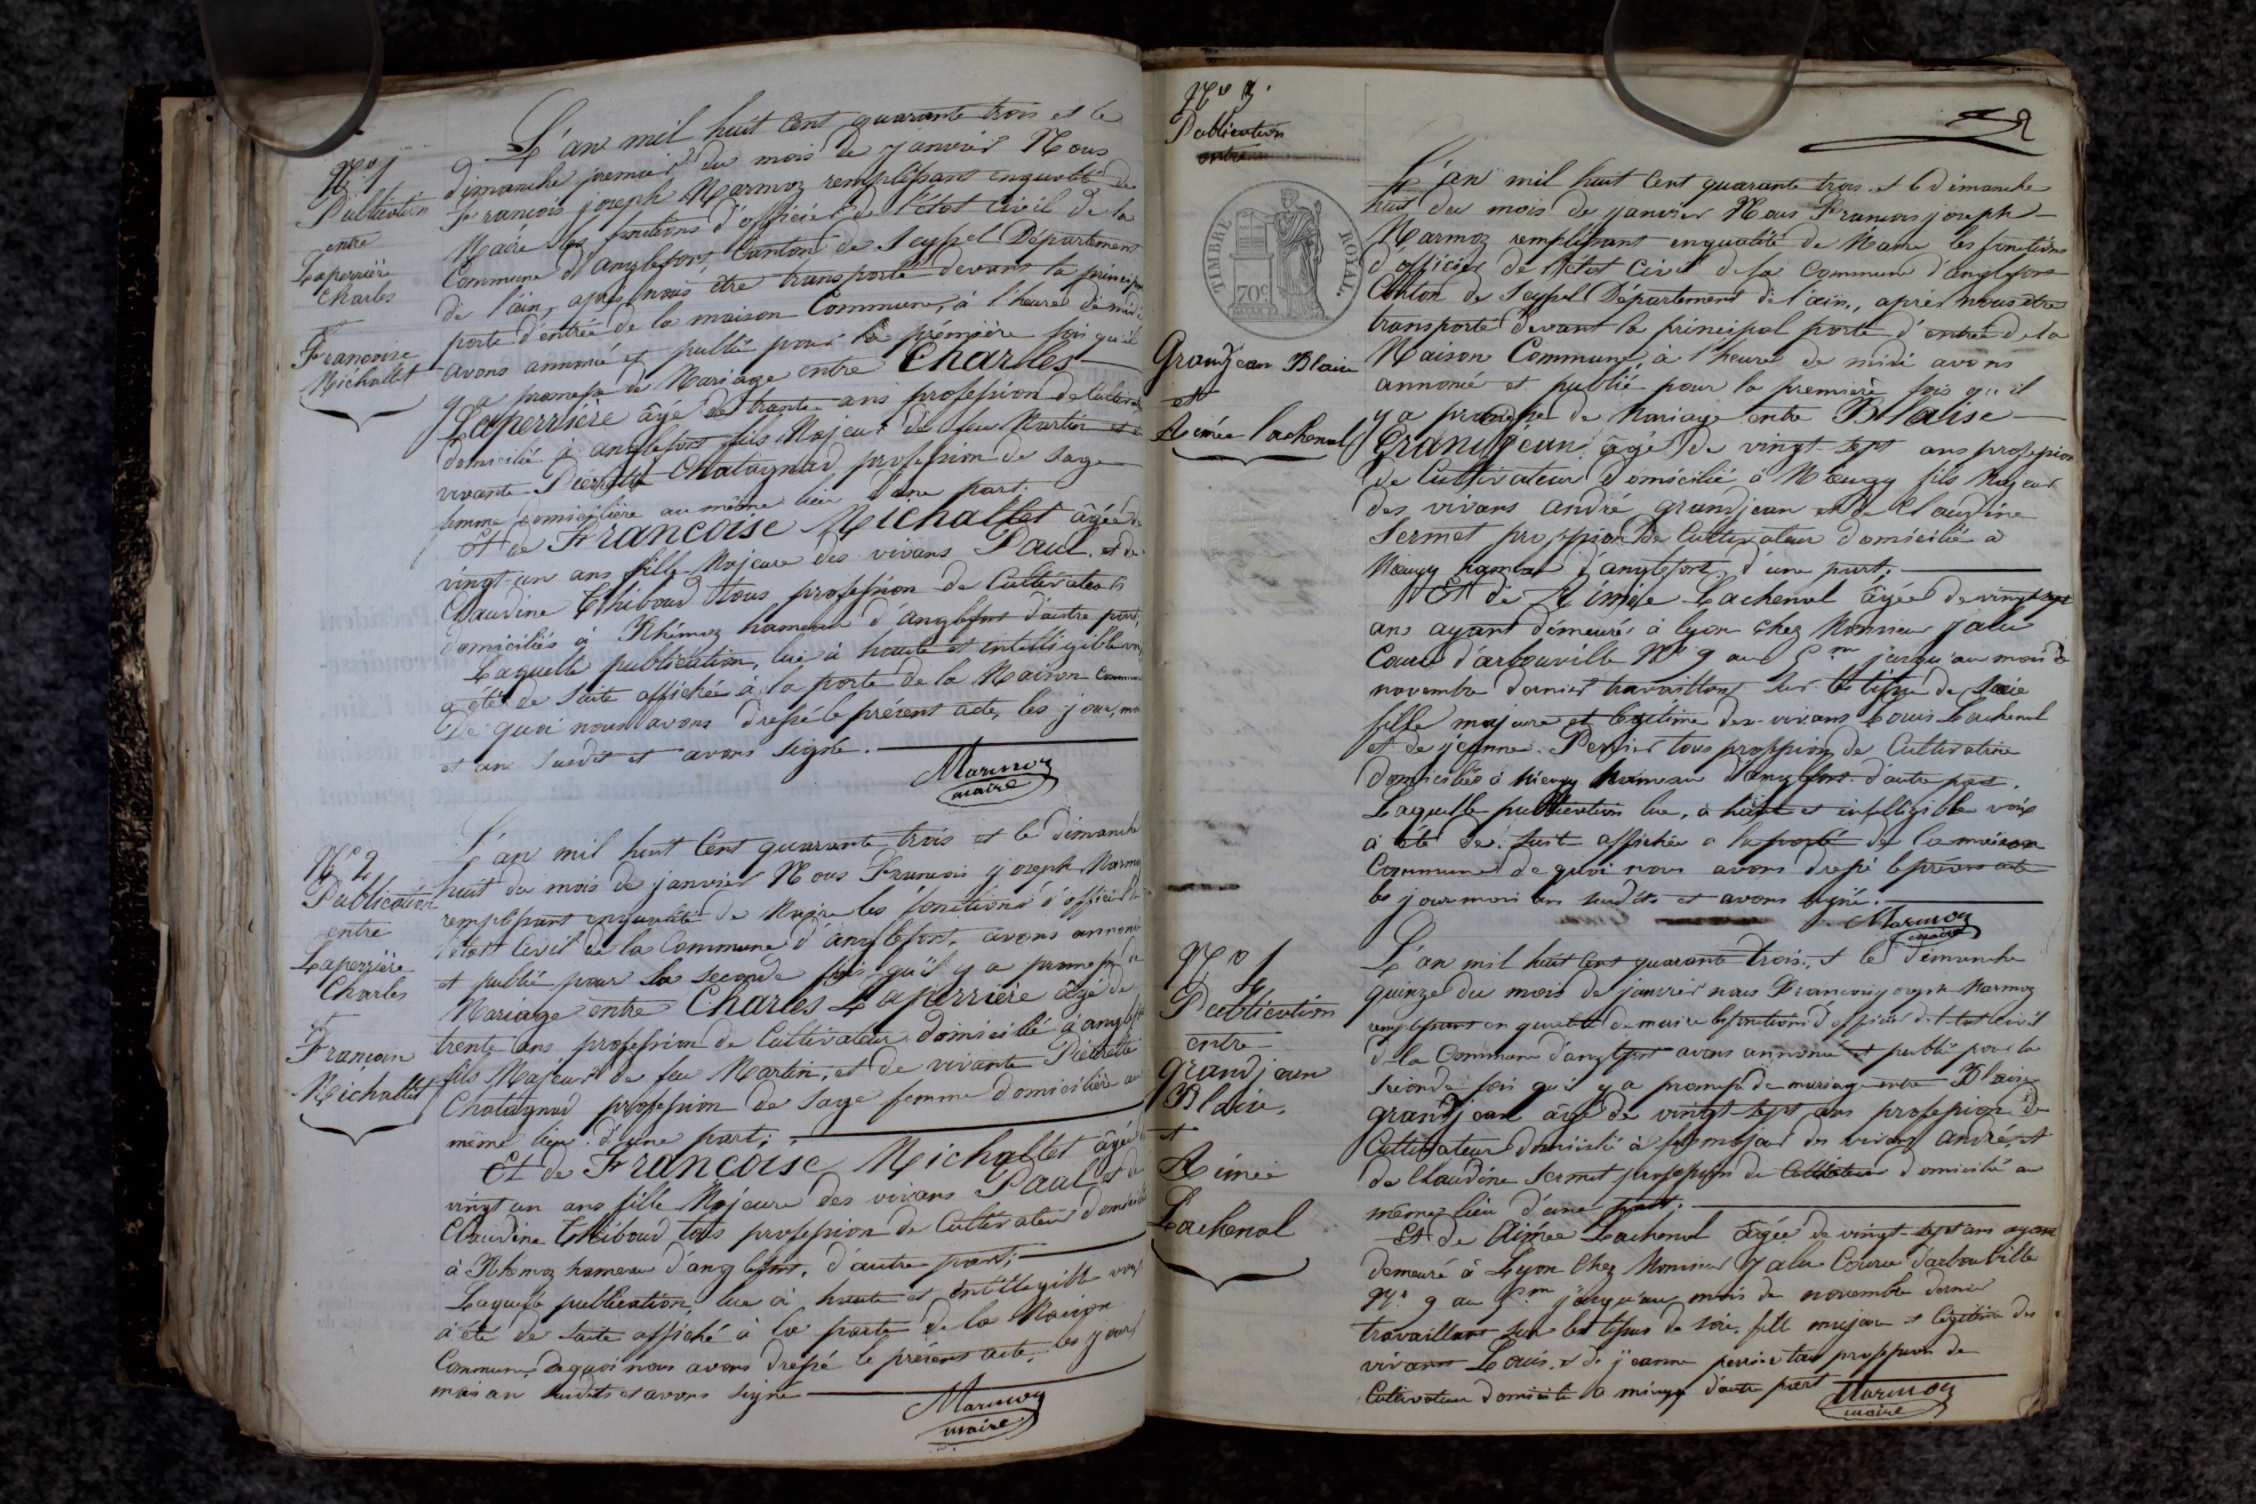 Nº 1
Publication
entre
Laperrière
Charles
et
Françoise
Michallet
L'an mil huit Cent quarante trois et le
dimanche premier du mois de janvier Nous
François joseph Marmoz remplissant enqualité de
Maire les fonctions d'officier de l'état Civil de la
Commune d'anglefort, Canton de Seyssel Département
de l'ain, après nous être transporté devant la principale
porte d'entrée de la maison Commune, à l'heure de midi
avons annoncé et publié pour la première fois qu'il
y a promesse de Mariage entre Charles
Laperrière âgé de trente ans profession de Cultivateur
domicilié à anglefort fils Majeur de feu Martin et de
vivante Pierrette Chataignard profession de Sage
femme domicilière au même lieu d'une part.
Et de Françoise Michallet âgée de
vingt-un ans fille Majeure des vivans Paul et de
Claudine Thiboud tous profession de Cultivateurs
domiciliés à Rhémoz hameau d'anglefort d'autre part,
Laquelle publication, lue à haute et intelligible voix
a été de suite affichée à la porte de la Maison Commune
De quoi nous avons dressé le présent acte, les jour, mois
et an susdit et avons signé.
Marmoz
maire
Nº 2
Publication
entre
Laperrière
Charles
et
Françoise
Michallet
L'an mil huit Cent quarante trois et le dimanche
huit du mois de janvier Nous François joseph Marmoz
remplissant enqualité de Maire les fonctions d'officier de
l'état Civil de la Commune d'anglefort, avons annoncé
et publié pour la seconde fois qu'il y a promesse de
Mariage entre Charles Laperrière âgé de
trente ans profession de Cultivateur domicilié à anglefort
fils Majeur de feu Martin, et de vivante Pierrette
Chataignard profession de Sage femme domicilière au
même lieu d'une part;
Et de Françoise Michallet âgée de
vingt un ans fille Majeure des vivans Paul et de
Claudine Thiboud tous profession de Cultivateur domiciliés
à Rhémoz hameau d'anglefort, d'autre part;
Laquelle publication, lue à haute et intelligible voix
a été de suite affiché à la porte de la Maison
Commune, dequoi nous avons dressé le présent acte, les jour
mois an susdits et avons signé
Marmoz
maire
Nº 3.
Publication
entre
TIMBRE ROYAL.
70c
Grandjean Blaise
et
Aimée Lachenal
L'an mil huit Cent quarante trois et le dimanche
huit du mois de janvier Nous François joseph
Marmoz remplissant enqualité de Maire les fonctions
d'officier de l'état Civil de la Commune d'anglefort
Canton de Seyssel Département de l'ain, après nous être
transporté devant la principal porte d'entrée de la
Maison Commune, à l'heure de midi avons
annoncé et publié pour la première fois qu'il
y a promesse de Mariage entre Blaise
Grandjean âgé de vingt-sept ans profession
de Cultivateur domicilié à Mieugy fils Majeur
des vivans andré grandjean et de Claudine
Sermet profession de Cultivateur domicilié à
Mieugy hameau d'anglefort, d'une part.
Et de Aimée Lachenal âgée de vingt-sept
ans ayant démeuré à lyon chez Monsieur jalu
Cours d'arbouville Nº 9 au 5me jusqu'au mois de
novembre dernier travaillant sur les tissus de Soie
fille majeure et légitime des vivans Louis Lachenal
et de jeanne Perrier tous profession de Cultivateur
domiciliés à mieugy hameau d'anglefort d'autre part.
Laquelle publication lue, à haute et intelligible voix
à été de suit affichée a la porte de la maison
Commune de quoi nous avons dressé le présent acte
les jour mois an susdits et avons signé.
Marmoz
maire
Nº 4
Publication
entre
grandjean
Blaise.
et
Aimée
Lachenal
L'an mil huit Cent quarante trois, et le dimanche
quinze du mois de janvier nous François joseph Marmoz
remplissant en qualité de maire les fonctions d'officier de l'état Civil
de la Commune d'anglefort avons annoncé et publié pour la
seconde fois qu'il y a promesse de mariage entre Blaise
grandjean âgé de vingt-sept ans profession de
Cultivateur domicilié à fils majeur des vivans andré, et
de Claudine Sermet profession de Cultivateur domicilié au
même lieu d'une part;
Et de Aimée Lachenal âgée de vingt-sept ans ayant
demeuré à Lyon Chez Monsieur jalu Cours d'arbouville
Nº 9 au 5me jusqu'au mois de novembre dernier
travaillant sur les tissus de soie, fille majeure et légitime des
vivans Louis, et de jeanne perrier tous profession de
Cultivateur domicilié a mieugy d'autre part
Marmoz
maire